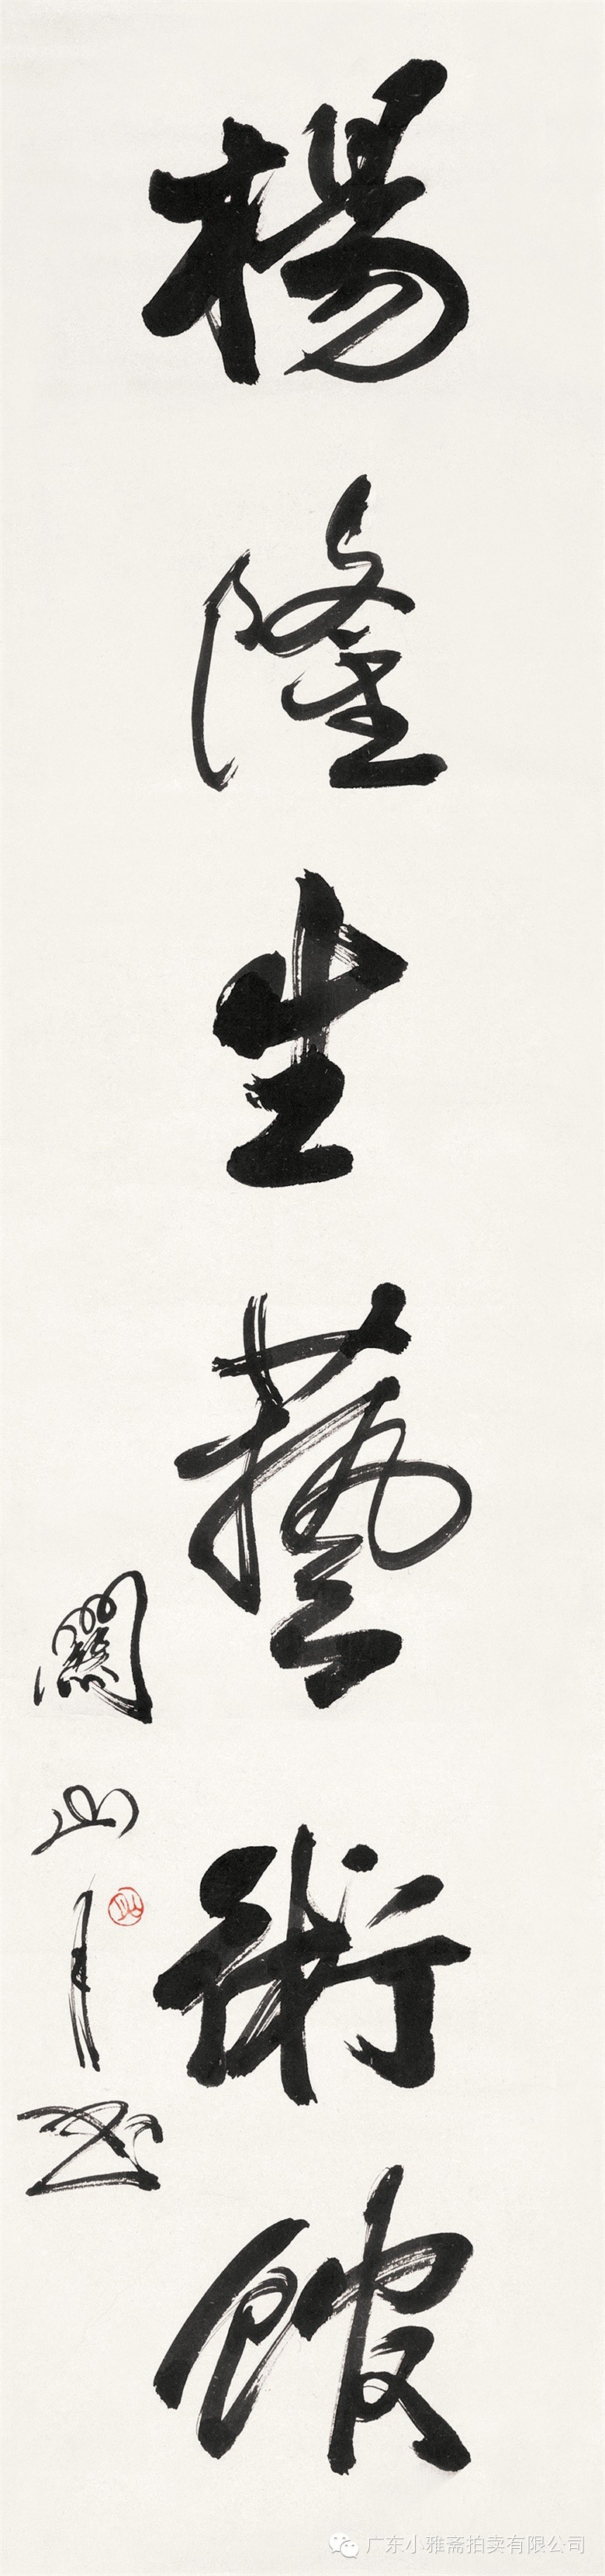 楊隆生藝術館
關山月書
广东小雅斋拍卖有限公司